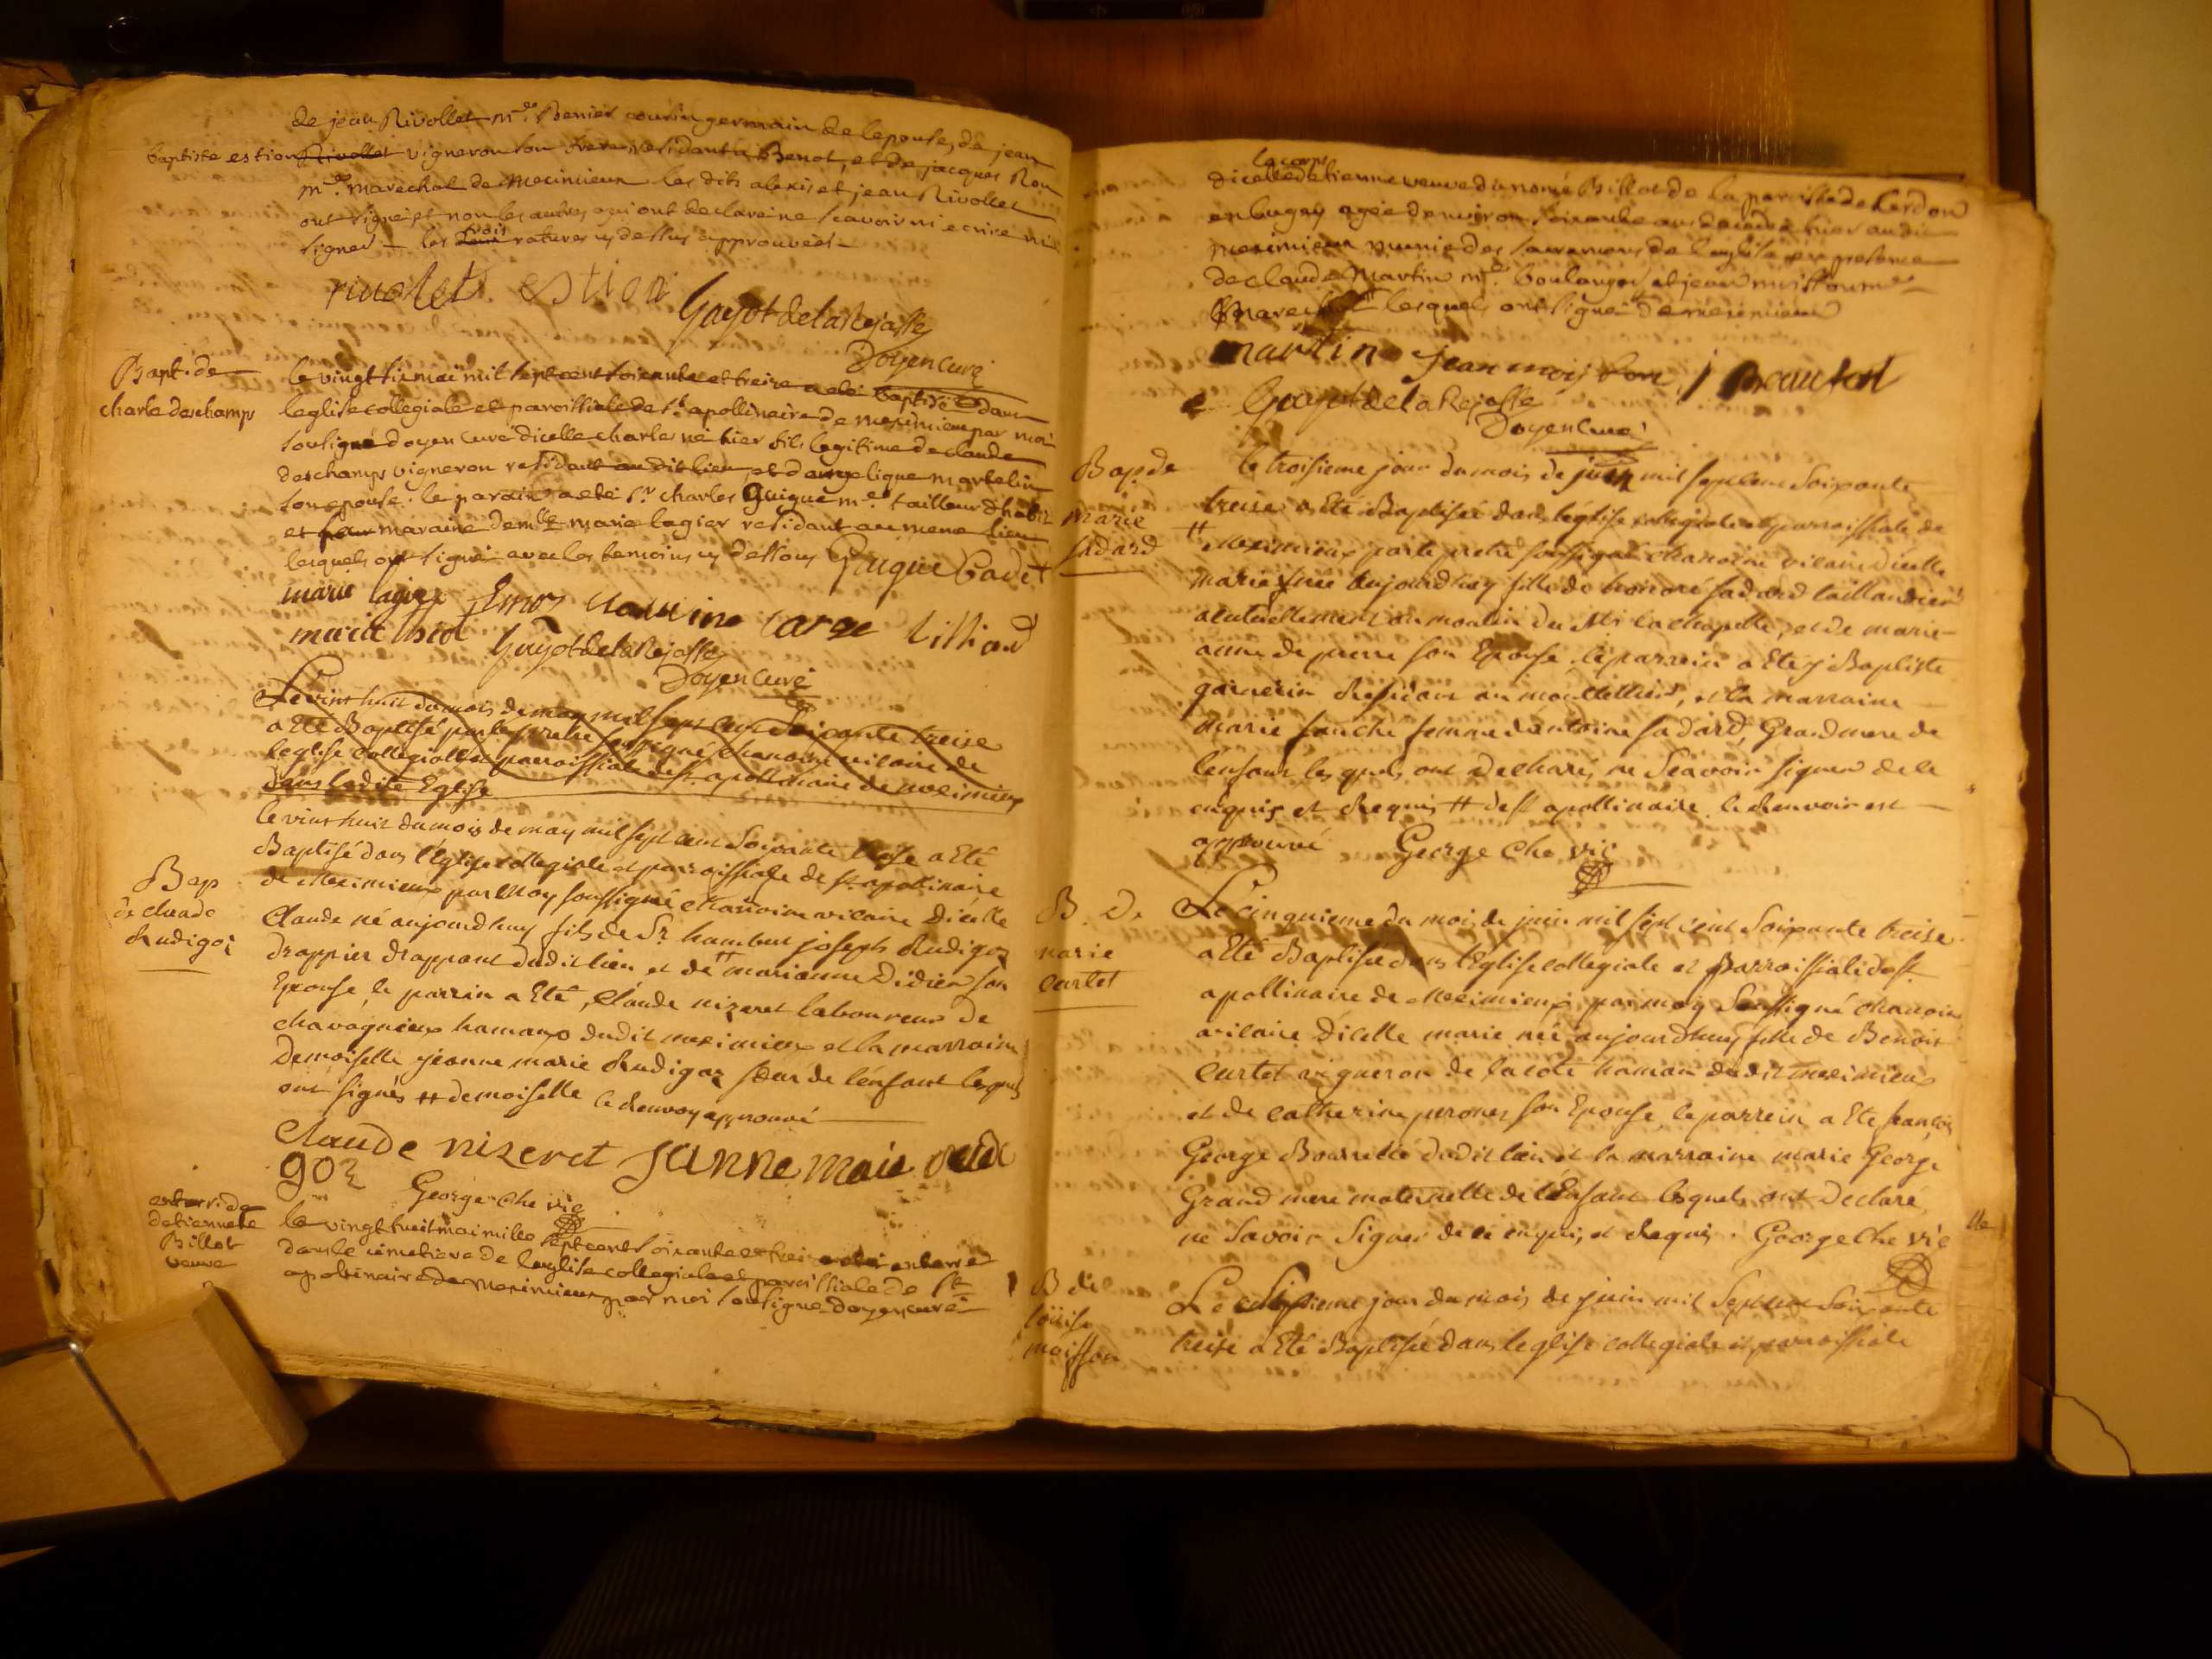 de jean Rivollet m.de Benier cousin germain de lepouse, de jean
baptiste estion Rivollet vigneron son frere residant a Benot, et de jacques Ron
m.de marechal de meximieux les dits alexis et jean Rivollet
ont signé et non les autres qui ont declare ne scavoir ni ecrire ni
signer — les trois ratures cy dessus approuvées —
rivolet estion Guyot de la Rejasse
Doyen Curé
Bapt. de
charle deschamps
le vingt six mai mil sept cent soixante et treize a eté baptisé dans
leglise collegiale et paroissiale de st apollinaire de meximieux par moi
sousigné doyen curé dicelle charles né hier fils legitime de claude
deschamps vigneron residant au dit lieu et dangelique martelin
son epouse. le parain a eté sr charles Guigue m.e tailleur dhabit
et maraine dem.lle marie lagier residant au meme lieu
lesquels ont signé avec les temoins cy dessous Guigue Cadet
marie lagier
Guyot de la Rejasse
Doyen Curé
Le vint huit du mois de may mil sept cent Soixante treise
a Eté Baptisé par le pretre soussigné chanoine vicaire de
leglise collegialle et parroissiale de st apollinaire de meximieux
dans ladite Eglise
le vint huit du mois de may mil sept cent Soixante treise a Eté
Baptisé dans l'Eglise collegiale et parroissiale de st apollinaire
Bap
de claude
Rudigoz
de Meximieux par Moy soussigné chanoine vicaire Dicelle
Claude né aujourdhuy fils de Sr. humbert joseph Rudigoz
Drappier Drappant dudit lieu et de # marianne Didier son
Epouse, le parrin a Eté, Claude nizeret laboureur de
chavagnieux hamaux dudit meximieux et la marraine
Demoiselle jeanne marie Rudigoz sœur de l'enfant lesquels
ont signés # demoiselle le renvoy approuvé
Claude nizeret janne maie rudi
goz George Che vic
enterri de
detiennete
Billot
veuve
le vingt huit mai mille sept cent soixante et treize a eté enterré
dans le cimetiere de leglise collegiale et paroissiale de st
apolinaire de meximieux par moi soussigné doyen curé
le corps
dicelle detienne veuve du nomé Billot de la paroisse de Cerdon
en bugey agée denviron soixante ans decedée hier audit
meximieux munie des sacremens de leglise en presence
de claude Martin m.e boulanger et jean moisson m.e
Marechal lesquels ont signé de meximieux
martin jean moisson j Beaufort
Guyot de la Rejasse
Doyen Curé
Bap. de
marie
fadard
le troisieme jour du mois de juin mil sept cent Soixante
treise a Eté Baptisée dans leglise collegiale et parroissiale de
# Meximieux par le pretre soussigné chanoine vicaire dicelle
marie née aujourdhuy fille de honoré fadard taillandier
actuellement au moulin du Mr la chapelle, et de marie
anne de pierre son Epouse. le parrein a Ete j Baptiste
garnerin Residant au montellier, et la marraine
marie fauché femme dantoine fadard, Grandmere de
l'enfant lesquels ont declarés ne Scavoir signer de ce
enquis et Requis # de st apollinaire. le Renvoir est
approuvé George Che vic
B. De
marie
curtet
Le cinquieme du mois de juin mil sept cent Soixante treise
a Eté Baptisée dans l'Eglise collegiale et Parroissiale de st
apollinaire de Meximieux, par moy Soussigné chanoine
vicaire Dicelle marie née aujourdhuy fille de Benoit
Curtet vigneron de la cote hamau dudit meximieux
et de catherine peronet son Epouse, le parrein a Ete francois
George Bourelié dudit lieu et la marraine marie George
Grand mere maternelle de l'Enfant lesquels ont Declaré
ne Savoir Signer de ce enquis, et Requis. George Che vic
B de
loüise
moisson
Le Septieme jour du mois de juin mil Sept cent Soixante
treise a Eté Baptisée dans leglise collegiale et parroissiale